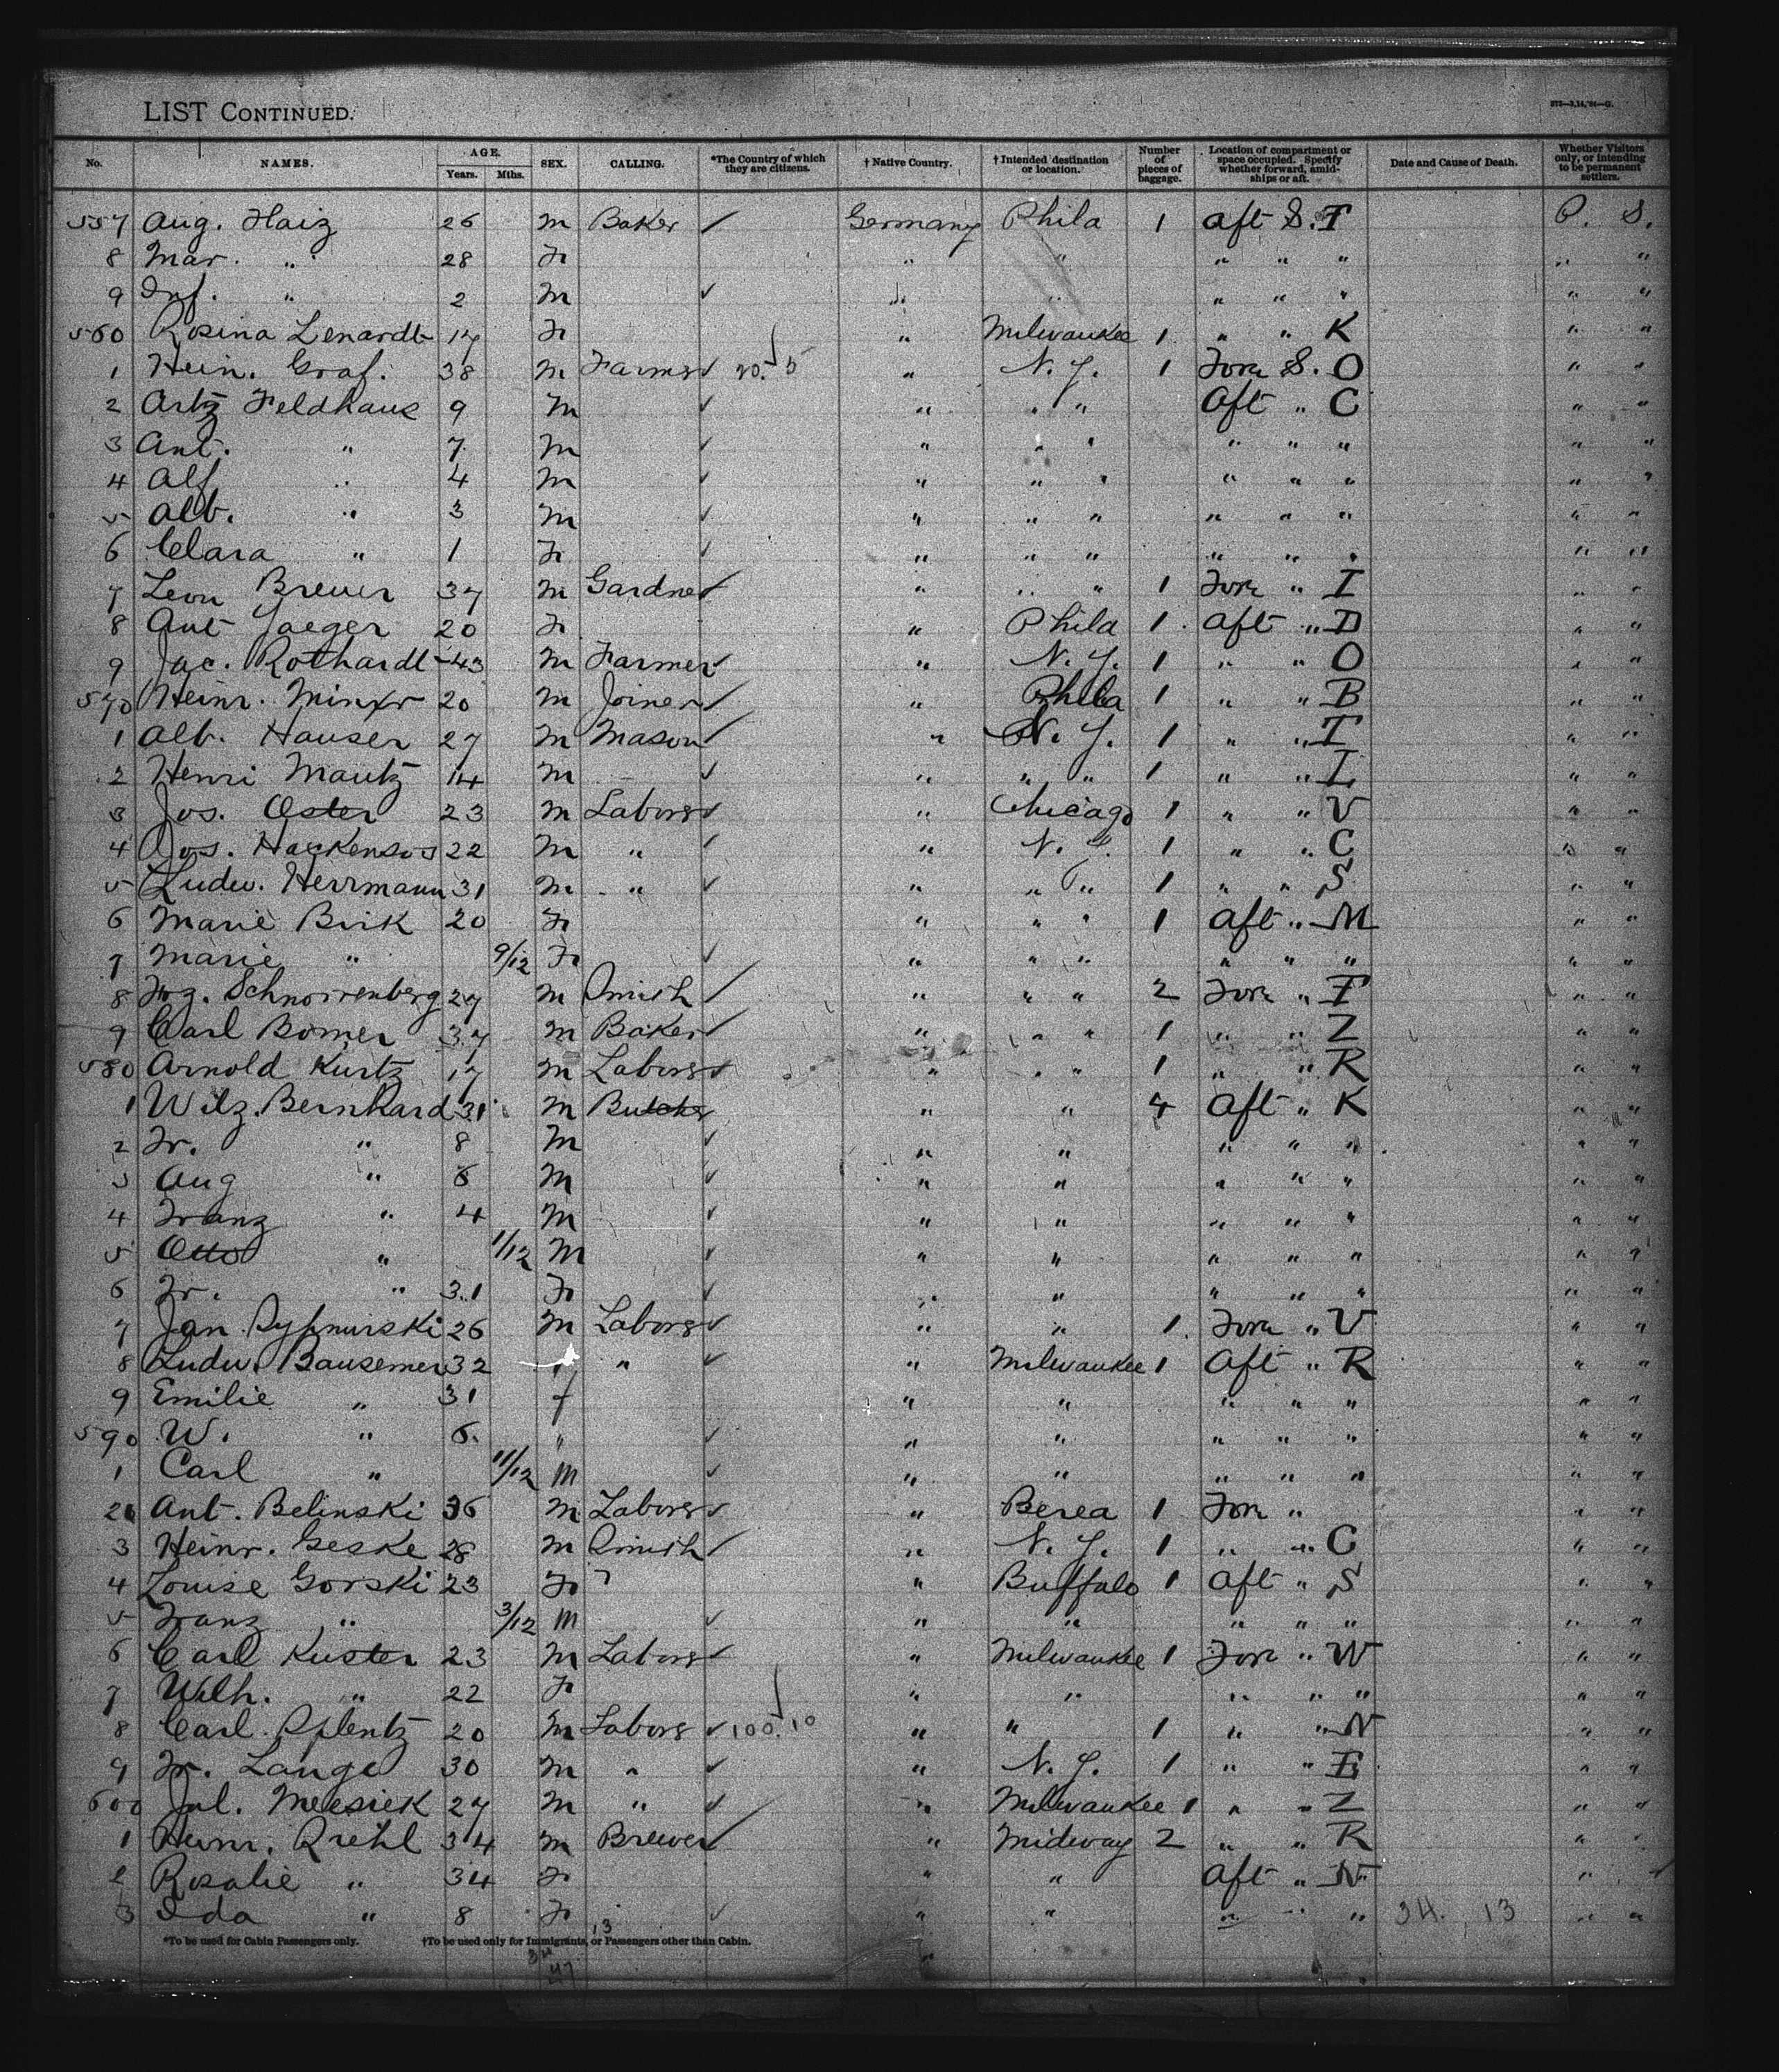 LIST CONTINUED.
No. NAMES. AGE. Years. Mths. SEX. CALLING. *The Country of which they are citizens. † Native Country. † Intended destination or location. Number of pieces of baggage. Location of compartment or space occupied. Specify whether forward, amidships or aft. Date and Cause of Death. Whether Visitors only, or intending to be permanent settlers.
557 Aug. Haiz 26 M Baker ✓ Germany Phila 1 Aft S. T P. S.
8 Mar. " 28 F " " " " " " "
9 Inf. " 2 M ✓ " " " " " " "
560 Rosina Lenardt 17 F " Milwaukee 1 " " K " "
1 Hein. Graf. 38 M Farmer ✓ 20. 5 " N. Y. 1 Fore S. O " "
2 Artz Feldhaus 9 M ✓ " " " Aft " C " "
3 Ant. " 7 M ✓ " " " " " " " "
4 Alf " 4 M ✓ " " " " " " " "
5 Alb. " 3 M ✓ " " " " " " " "
6 Clara " 1 F ✓ " " " " " " " "
7 Leon Breuer 37 M Gardner ✓ " " " 1 Fore " I " "
8 Ant Jaeger 20 F " Phila 1 Aft " D " "
9 Jac. Rothardt 43 M Farmer ✓ " N. Y. 1 " " O " "
570 Heinr. 20 M Joiner ✓ " Phila 1 " " B " "
1 Alb. Hauser 27 M Mason ✓ " N. Y. 1 " " T " "
2 Henri Mautz 14 M ✓ " " " 1 " " L " "
3 Jos. Oster 23 M Labors ✓ " Chicago 1 " " V " "
4 Jos. 22 M " ✓ " N. Y. 1 " " C " "
5 Ludw. Herrmann 31 M " ✓ " " " 1 " " S " "
6 Marie Birk 20 F " " " 1 Aft " M " "
7 Marie " 9/12 F ✓ " " " " " " " "
8 Schnorrenberg 27 M Smith ✓ " " " 2 Fore " " "
9 Carl Bomer 37 M Baker ✓ " " " 1 " " Z " "
580 Arnold Kurtz 17 M Labors ✓ " " " 1 " " R " "
1 Wilz. Bernhard 31 M Butcher " " 4 Aft " K " "
2 Fr. " 8 M ✓ " " " " " " "
3 Aug " 6 M ✓ " " " " " " "
4 Franz " 4 M ✓ " " " " " " "
5 Otto " 1/12 M ✓ " " " " " " "
6 Fr. " 31 F ✓ " " " " " " "
7 Jan 26 M Labors ✓ " " 1 Fore " V " "
8 Ludw. Bausemer 32 " ✓ " Milwaukee 1 Aft " R " "
9 Emilie " 31 f " " " " " " "
590 W. " 6 " ✓ " " " " " " "
1 Carl " 11/12 M ✓ " " " " " " "
2 Ant. Belinski 36 M Labors ✓ " Berea 1 Fore " " "
3 Heinr. Geske 28 M Smith ✓ " N. Y. 1 " " C " "
4 Louise Gorski 23 F " Buffalo 1 Aft " S " "
5 Franz " 3/12 M ✓ " " " " " " "
6 Carl Kuster 23 M Labors ✓ " Milwaukee 1 Fore " W " "
7 Wilh. " 22 F " " " " " " "
8 Carl 20 M Labors ✓ 100. 10 " " 1 " " N " "
9 Fr. Lange 30 M " ✓ " N. Y. 1 " " E " "
600 Jul. Meesiek 27 M " ✓ " Milwaukee 1 " " Z " "
1 34 M Brewer ✓ " Midway 2 " " R " "
2 Rosalie " 34 F " " Aft " N " "
3 Ida " 8 F ✓ " " " " " 34. 13 " "
*To be used for Cabin Passengers only. †To be used only for Immigrants, or Passengers other than Cabin.
13
34
47